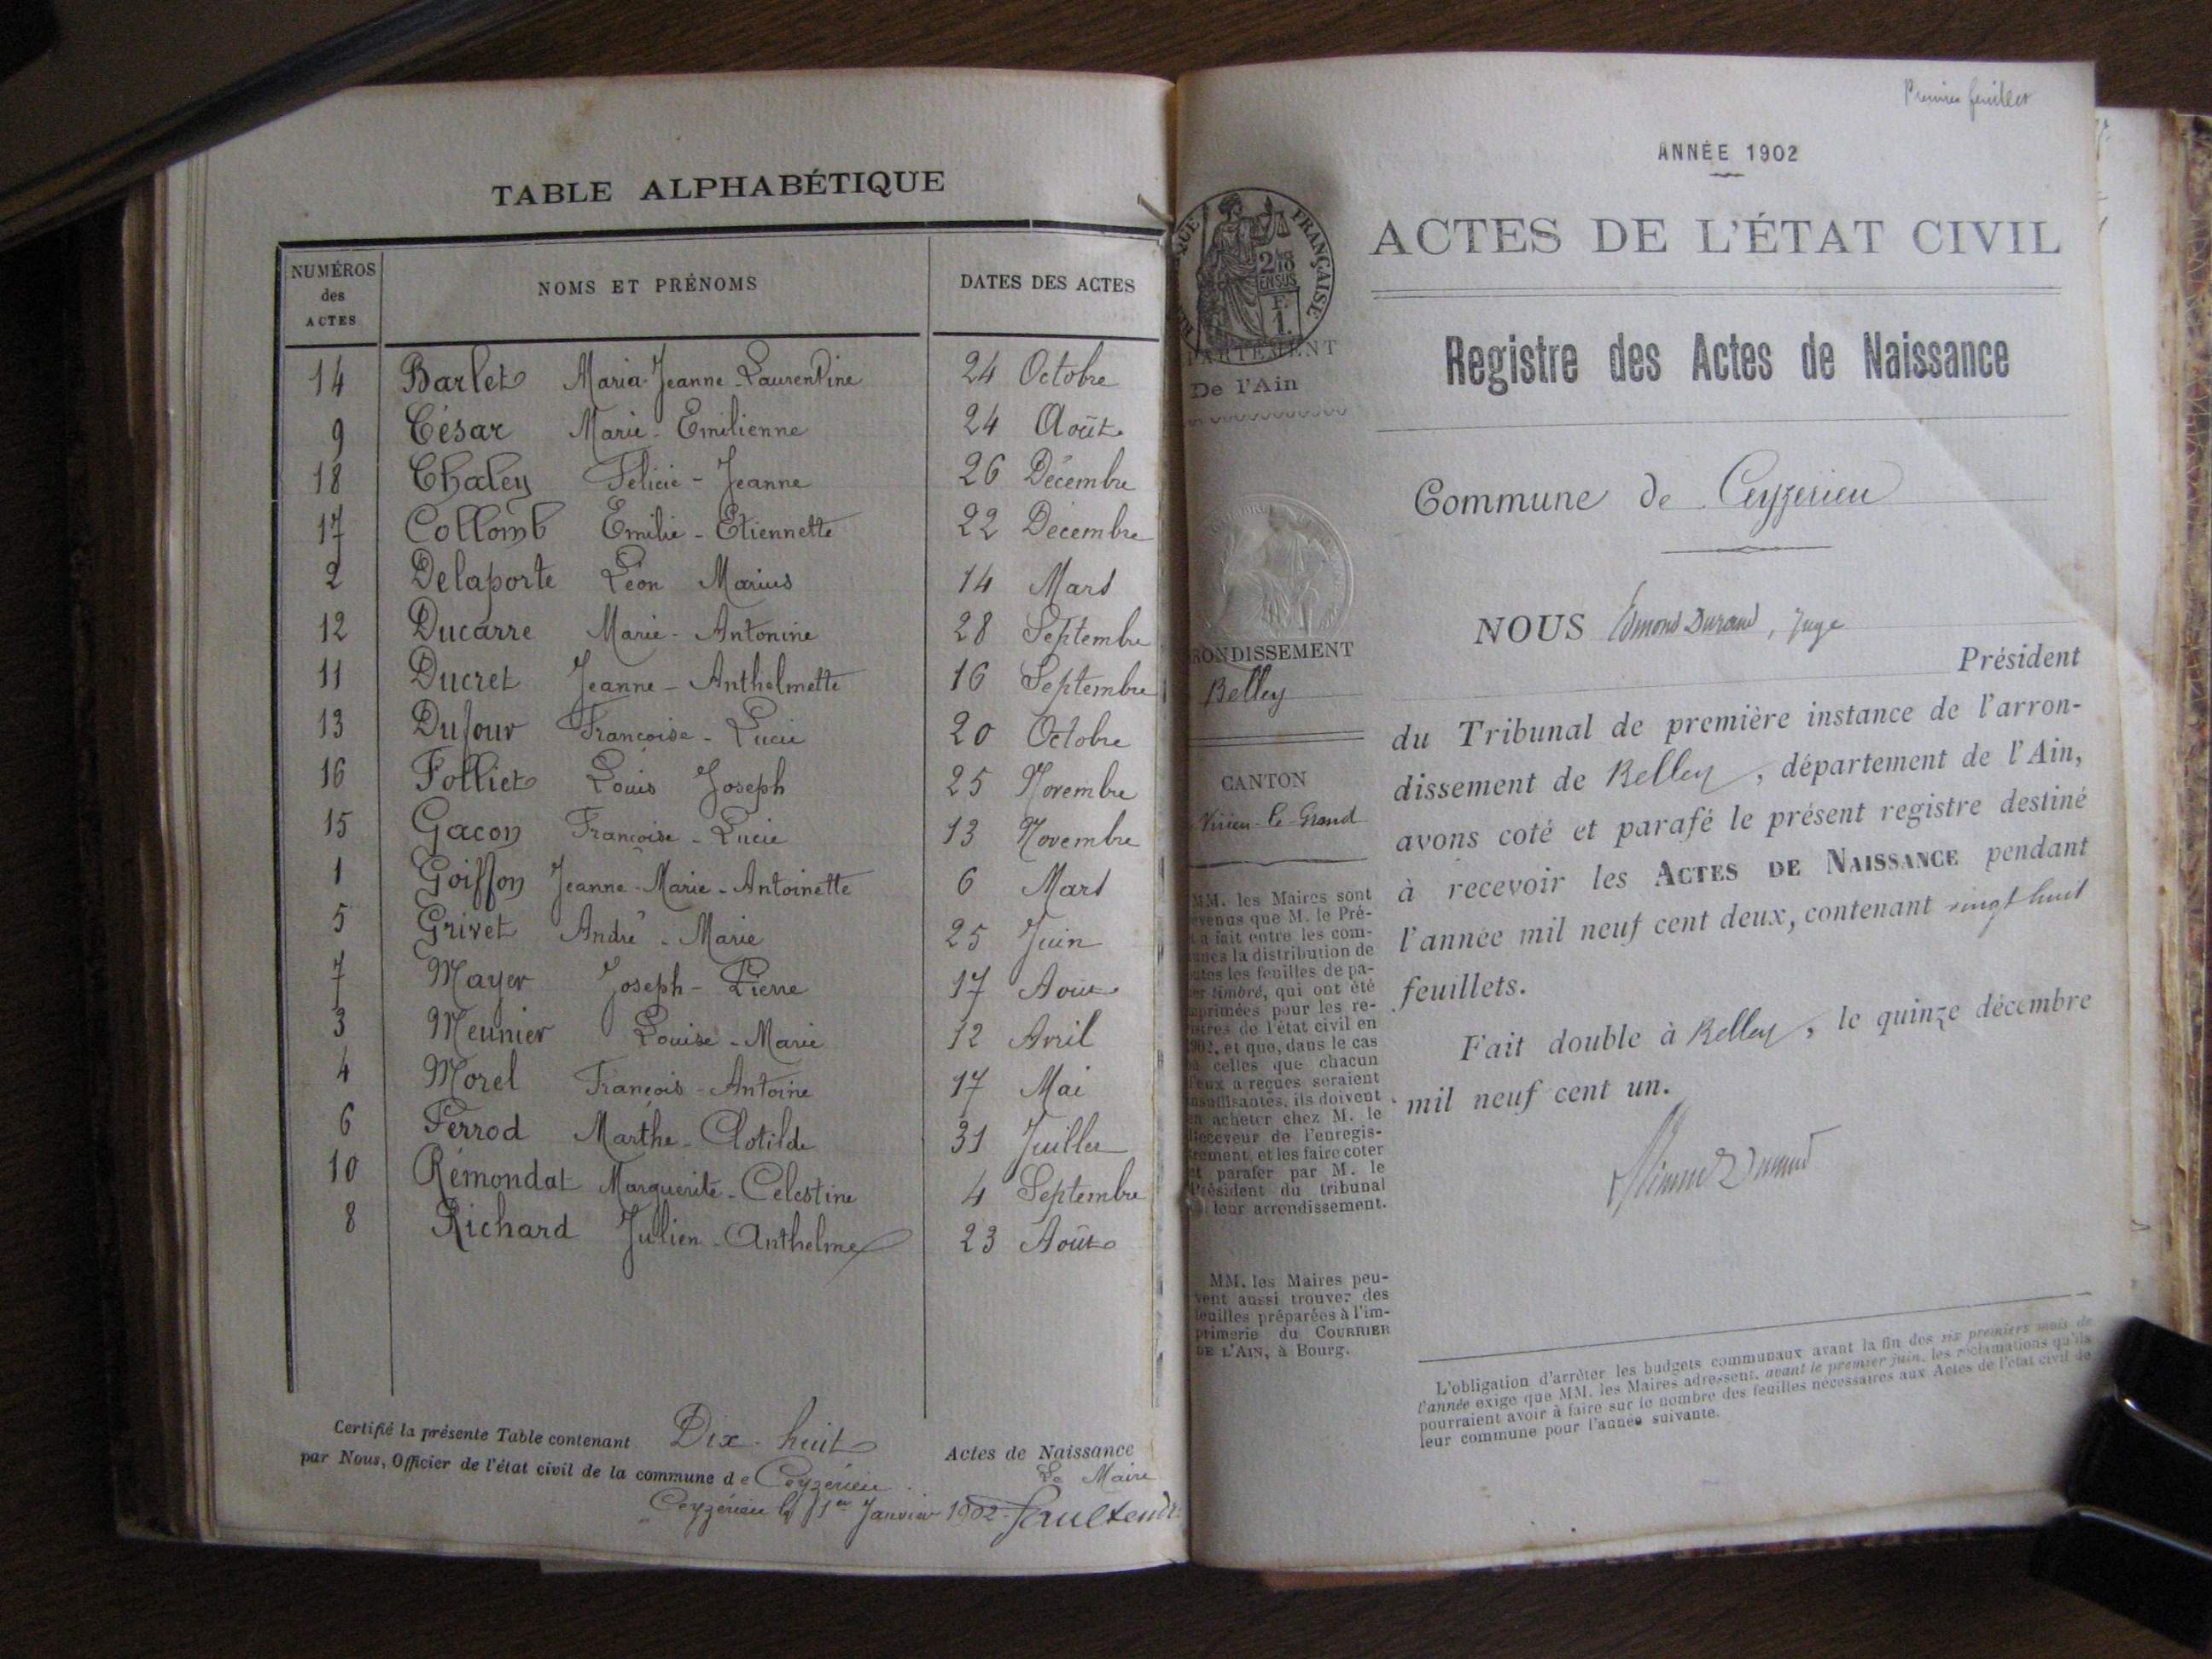 TABLE ALPHABÉTIQUE
NUMÉROS des ACTES NOMS ET PRÉNOMS DATES DES ACTES
14 Barlet Maria-Jeanne-Laurentine 24 Octobre
9 César Marie-Emilienne 24 Août
18 Chaley Félicie-Jeanne 26 Décembre
17 Collomb Emilie-Etiennette 22 Décembre
2 Delaporte Léon Marius 14 Mars
12 Ducarre Marie-Antonine 28 Septembre
11 Ducret Jeanne-Anthelmette 16 Septembre
13 Dufour Françoise-Lucie 20 Octobre
16 Folliet Louis Joseph 25 Novembre
15 Gacon Françoise-Lucie 13 Novembre
1 Goiffon Jeanne-Marie-Antoinette 6 Mars
5 Grivet André-Marie 25 Juin
7 Mayer Joseph-Pierre 17 Août
3 Meunier Louise-Marie 12 Avril
4 Morel François-Antoine 17 Mai
6 Perrod Marthe-Clotilde 31 Juillet
10 Rémondat Marguerite-Celestine 4 Septembre
8 Richard Julien-Anthelme 23 Août
Certifié la présente Table contenant Dix-huit Actes de Naissance
par Nous, Officier de l'état civil de la commune de Ceyzérieu Le Maire
Ceyzérieu le 1er Janvier 1902
Premier feuillet
ANNÉE 1902
FRANÇAISE
ACTES DE L'ÉTAT CIVIL
Registre des Actes de Naissance
De l'Ain
Commune de Ceyzerieu
NOUS Edmond Durand, Juge
Président
du Tribunal de première instance de l'arron-
dissement de Belley, département de l'Ain,
avons coté et parafé le présent registre destiné
à recevoir les ACTES DE NAISSANCE pendant
l'année mil neuf cent deux, contenant vingt huit
feuillets.
Fait double à Belley, le quinze décembre
mil neuf cent un.
RONDISSEMENT
Belley
CANTON
Virieu-le-Grand
MM. les Maires sont
évenus que M. le Pré-
a fait entre les com-
unes la distribution de
utes les feuilles de pa-
er timbré, qui ont été
primées pour les re-
istres de l'état civil en
1902, et que, dans le cas
où celles que chacun
d'eux a reçues seraient
insuffisantes, ils doivent
en acheter chez M. le
Receveur de l'enregis-
trement, et les faire coter
et parafer par M. le
Président du tribunal
leur arrondissement.
MM. les Maires peu-
vent aussi trouver des
feuilles préparées à l'im-
primerie du COURRIER
DE L'AIN, à Bourg.
L'obligation d'arrêter les budgets communaux avant la fin des six premiers mois de
l'année exige que MM. les Maires adressent, avant le premier juin, les réclamations qu'ils
pourraient avoir à faire sur le nombre des feuilles nécessaires aux Actes de l'état civil de
leur commune pour l'année suivante.